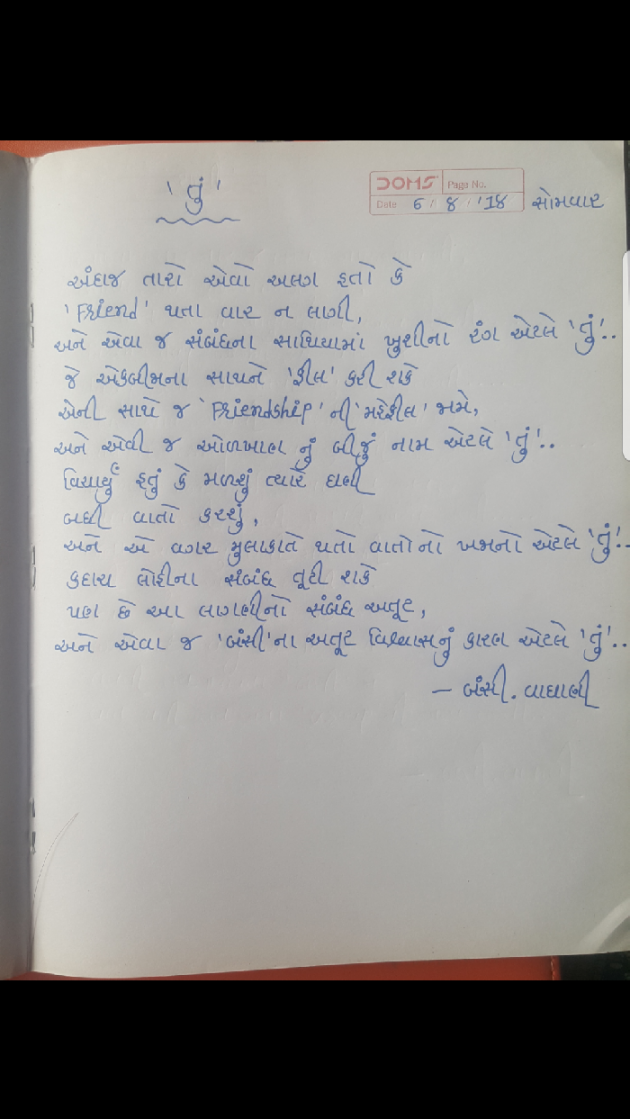 ' તું '
DOMS Page No.
Date 6 / 8 / '18 સોમવાર
અંદાજ તારો એવો અલગ હતો કે
'Friend' થતા વાર ન લાગી,
અને એવા જ સંબંધના સાથિયામાં ખુશીનો રંગ એટલે 'તું'..
જે એકબીજાના સાથને 'ફીલ' કરી શકે
એની સાથે જ 'Friendship' ની 'મહેફીલ' જામે,
અને એવી જ ઓળખાણ નું બીજું નામ એટલે 'તું'..
વિચાર્યું હતું કે મળશું ત્યારે ઘણી
બધી વાતો કરશું,
અને એ વગર મુલાકાતે થતો વાતોનો ખજાનો એટલે 'તું'..
કદાચ લોહીના સંબંધ તૂટી શકે
પણ છે આ લાગણીનો સંબંધ અતૂટ,
અને એવા જ 'બંસી'ના અતૂટ વિશ્વાસનું કારણ એટલે 'તું'..
– બંસી. વાઘાણી